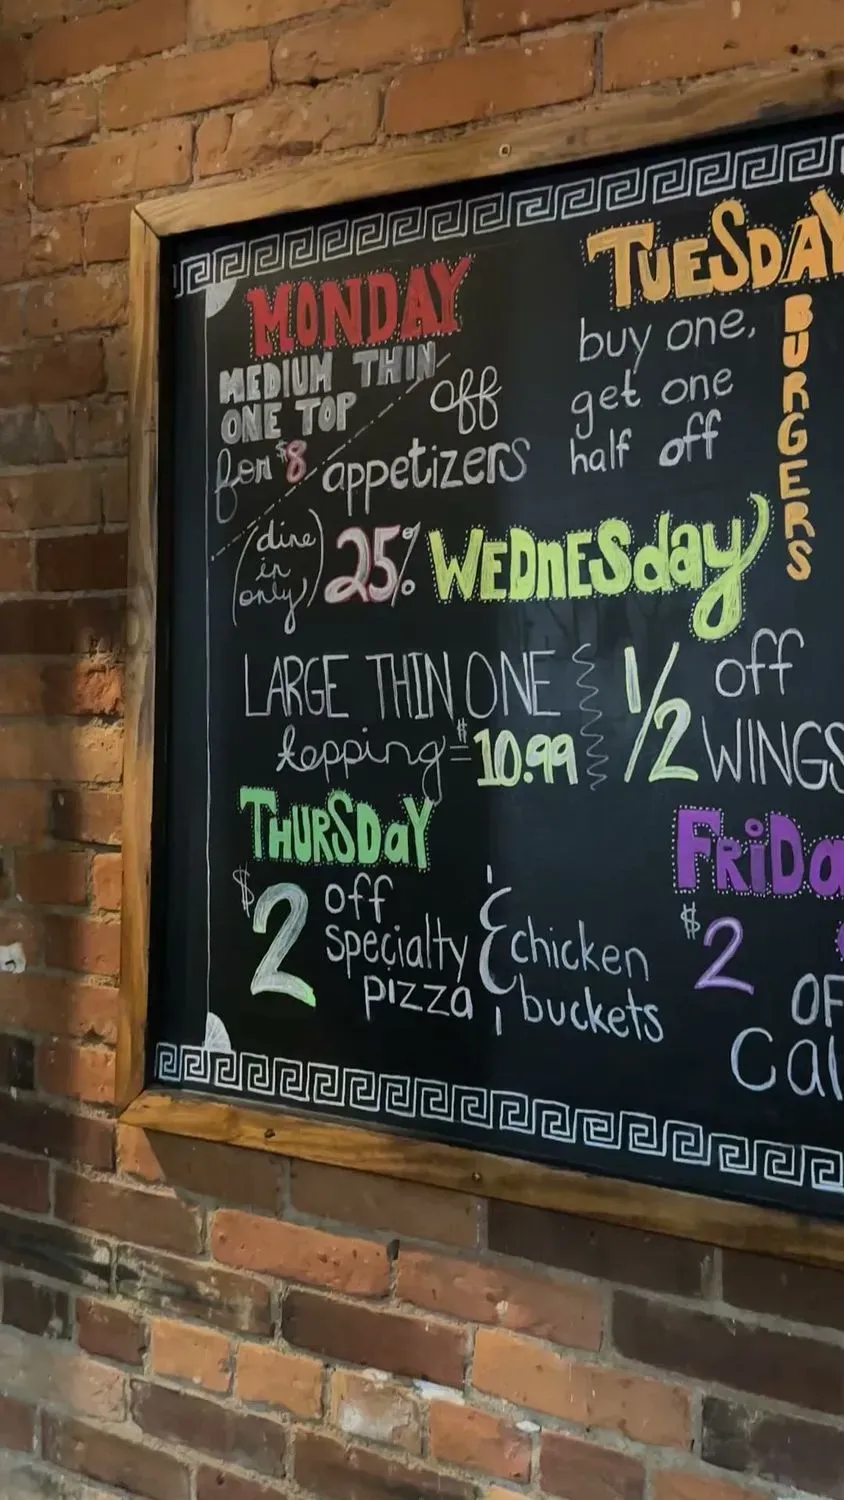 MONDAY
MEDIUM THIN
ONE TOP
for $8
off
appetizers
(dine
in
only)
25%
TUESDAY
buy one,
get one
half off
BURGERS
WEDNESday
LARGE THIN ONE
topping = $10.99
1/2 off
WINGS
THURSDaY
$2 off
specialty
pizza
& chicken
buckets
FRiDa
$2
OF
Cal